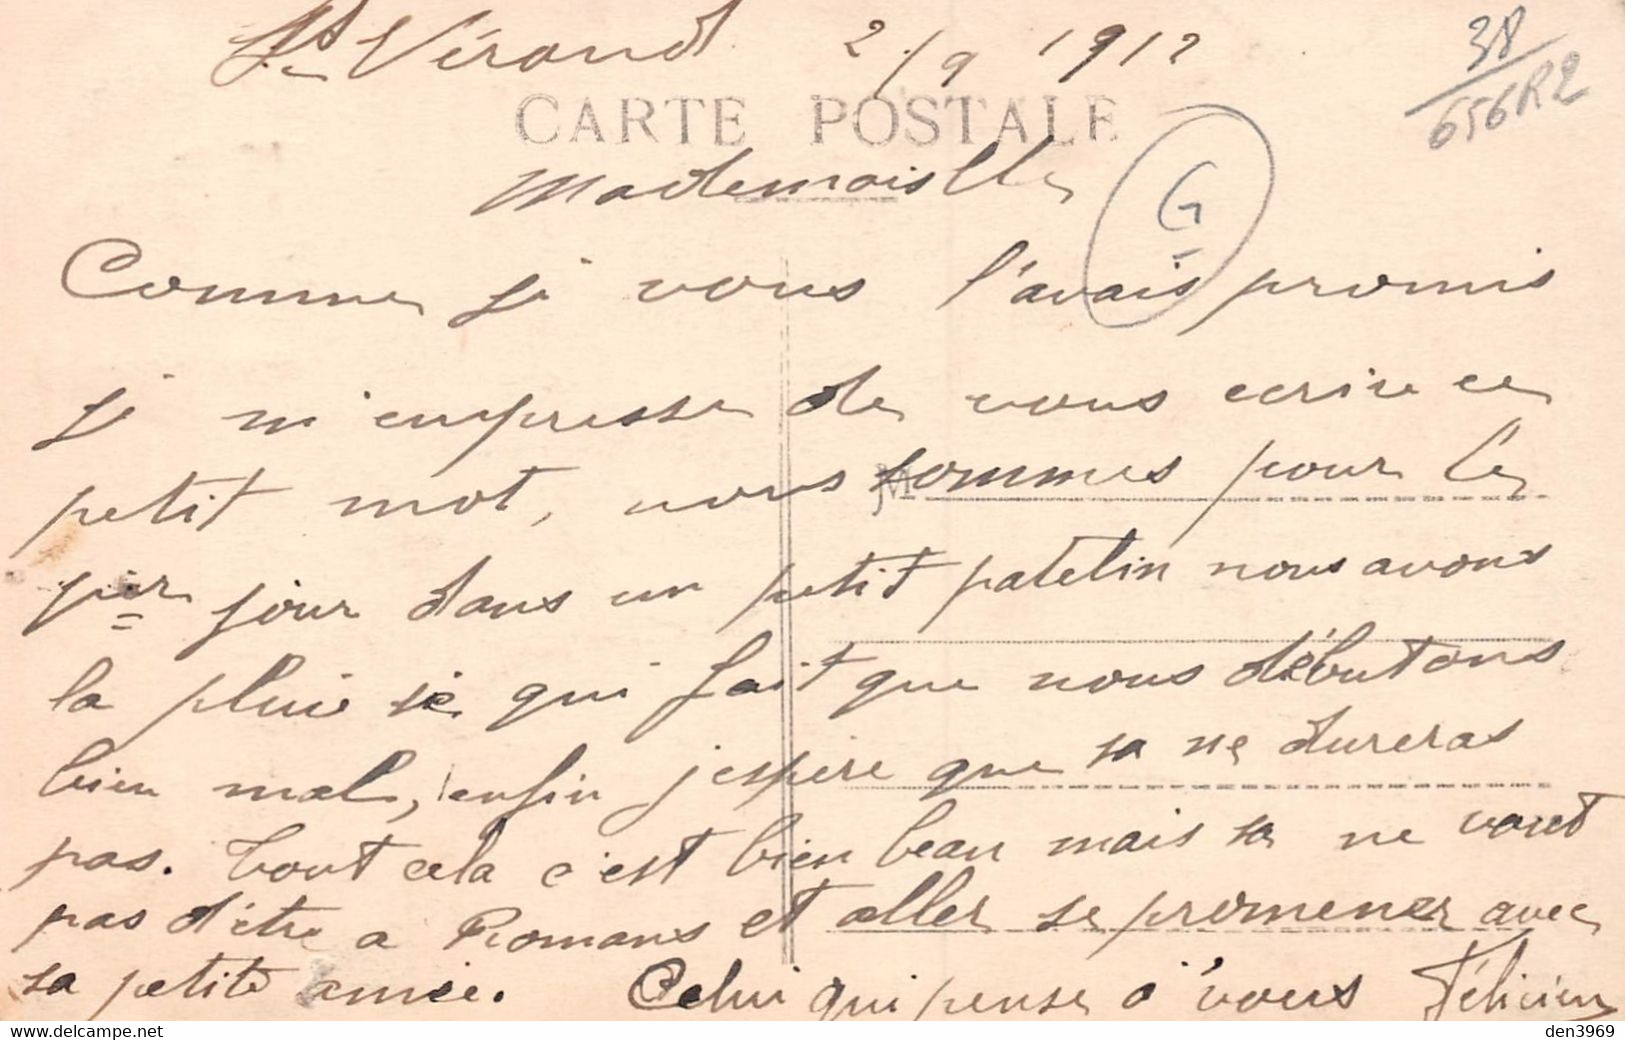 St Vérand 2/9 1912
38
656R2
CARTE POSTALE
Mademoiselle
G
Comme je vous l'avais promis
je m'empresse de vous ecrire ce
petit mot, nous sommes pour le
M
pier jour dans un petit patelin nous avons
la pluie se qui fait que nous débutons
bien mal, enfin j'espère que sa ne dureras
pas. Tout cela c'est bien beau mais sa ne vaut
pas d'être a Romans et aller se promener avec
sa petite amie. Celui qui pense à vous Félicien
www.delcampe.net
den3969